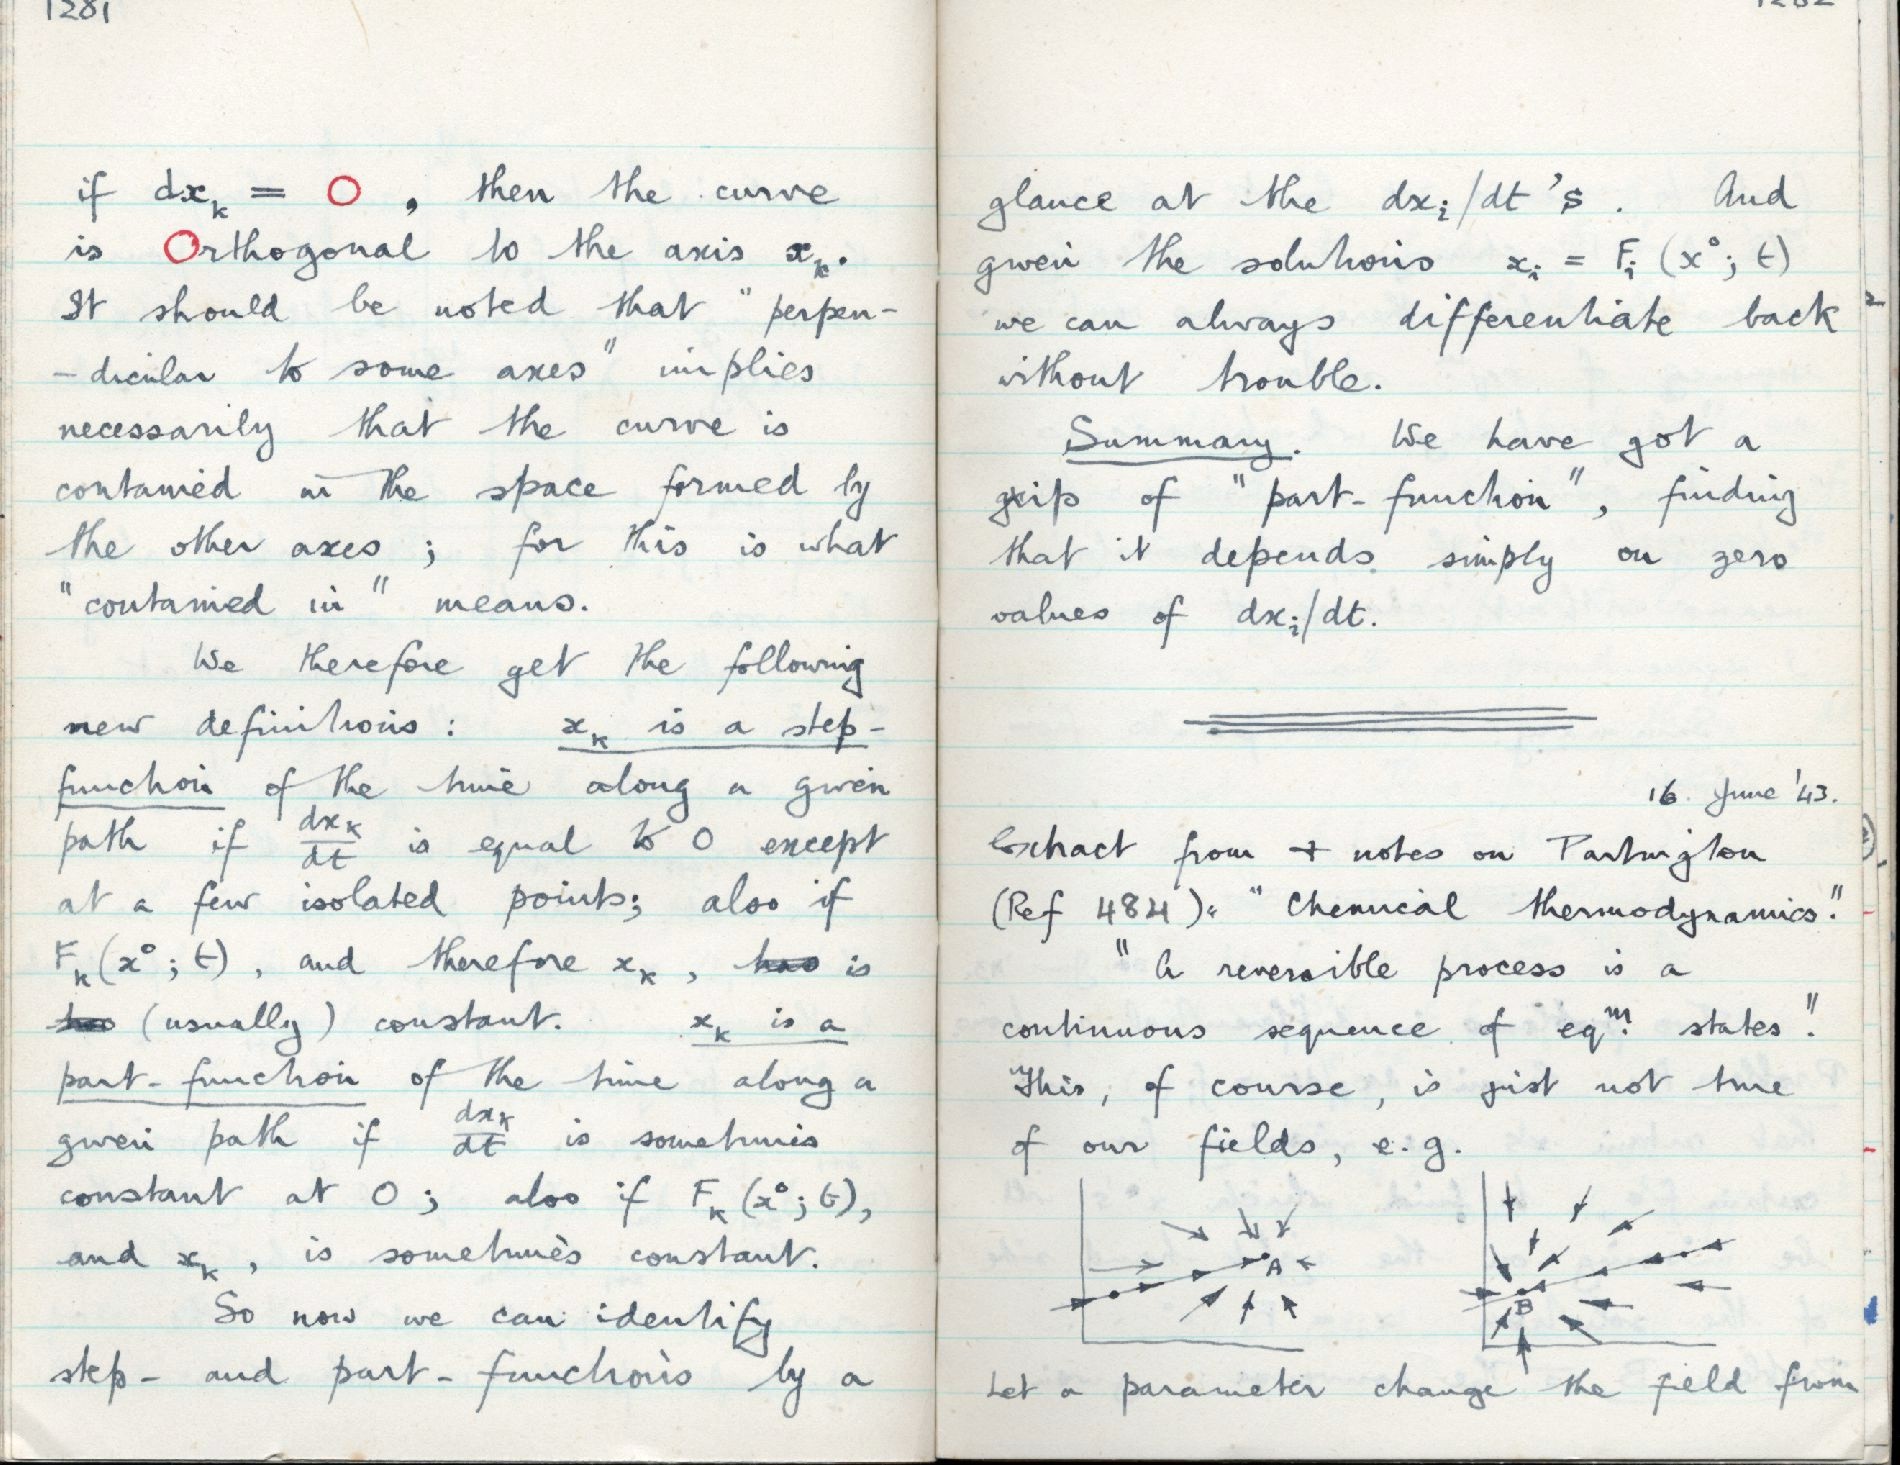 1281
if dxₖ = O, then the curve
is Orthogonal to the axis xₖ.
It should be noted that "perpen-
-dicular to some axes" implies
necessarily that the curve is
contained in the space formed by
the other axes ; for this is what
"contained in" means.
We therefore get the following
new definitions : xₖ is a step-
function of the time along a given
path if dxₖ/dt is equal to 0 except
at a few isolated points; also if
Fₖ(x°; t), and therefore xₖ, has is
has (usually) constant. xₖ is a
part-function of the time along a
given path if dxₖ/dt is sometimes
constant at 0 ; also if Fₖ(x°; t),
and xₖ, is sometimes constant.
So now we can identify
step- and part-functions by a
1282
glance at the dxᵢ/dt's. And
given the solutions xᵢ = Fᵢ(x°; t)
we can always differentiate back
without trouble.
Summary. We have got a
grip of "part-function", finding
that it depends simply on zero
values of dxᵢ/dt.
16 June '43.
Extract from + notes on Partington
(Ref 484). "Chemical thermodynamics."
"A reversible process is a
continuous sequence of eqᵐ. states".
This, of course, is just not true
of our fields, e.g.
A
B
Let a parameter change the field from